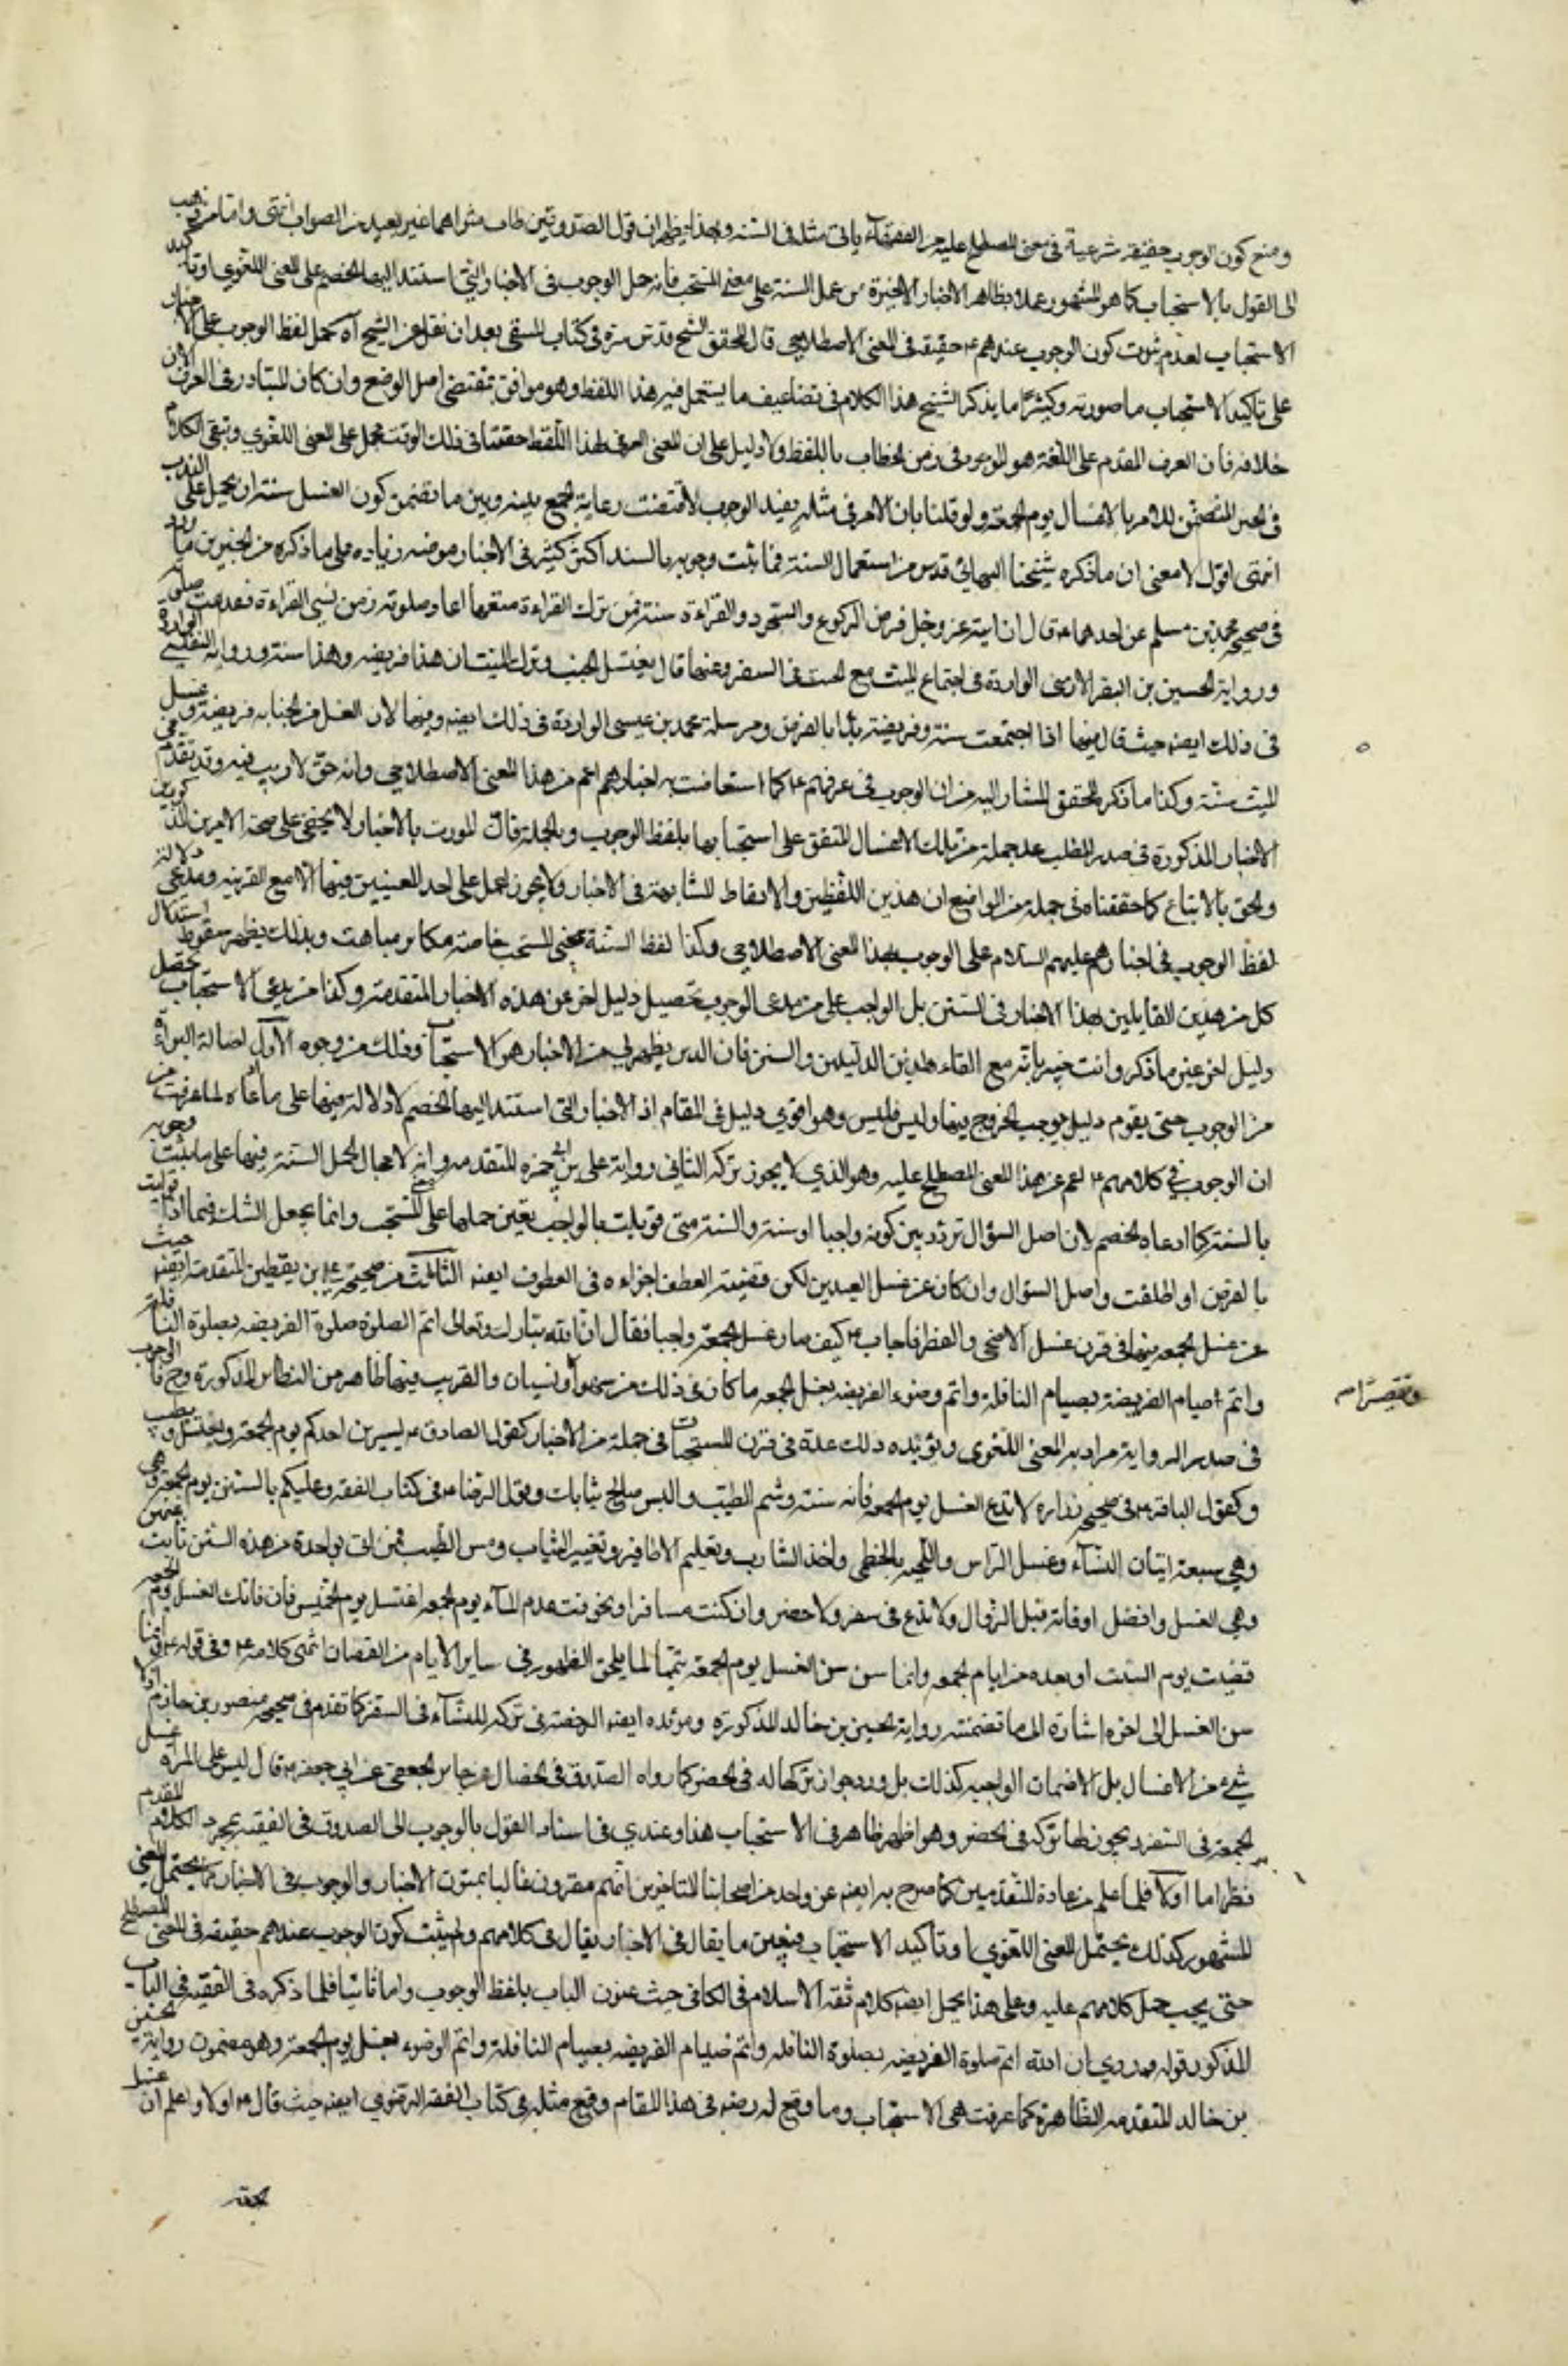 ومنع كون الوجوب حقيقة شرعية في معنى المصطلح عليه بين الفقهاء يأتي مثله في السنة وبهذا يظهر ان قول الصدوقين طاب مثواهما غير بعيد من الصواب انتهى واما من ذهب
الى القول بالاستحباب كما هو المشهور عملا بظاهر الاخبار الاخيرة من عمل السنة على معنى المستحب فانه حمل الوجوب في الاخبار التي استند اليها الخصم على المعنى اللغوي او تأكيد
الاستحباب لعدم ثبوت كون الوجوب عندهم ع حقيقة في المعنى الاصطلاحي قال المحقق الشيخ قدس سره في كتاب المنتقى بعد ان نقل عن الشيخ انه حمل لفظ الوجوب على
على تأكيد الاستحباب ما صورته وكثيرا ما يذكر الشيخ هذا الكلام في تضاعيف ما يستعمل فيه هذا اللفظ وهو موافق بمقتضى اصل الوضع وان كان المتبادر في العرف الان
خلافه فان العرف المقدم على اللغة هو الموجود في زمن الخطاب باللفظ ولا دليل على ان المعنى العرفي لهذا اللفظ حقيقتا في ذلك الوقت محمل على المعنى اللغوي وتبقى الكلام
في الخبر المتضمن للامر بالاغتسال يوم الجمعة ولو قلنا بان الامر في مثله يفيد الوجوب لاقتضت رعاية الجمع بينه وبين ما تضمن كون الغسل سنة ان يحمل على الندب
انتهى اقول لا معنى ان ما ذكره شيخنا البهائي قدس من استعمال السنة فما ثبت وجوبه بالسند اكثر كثير في الاخبار وموضه زياده على ما ذكره من الخبرين ما ورد
في صحيح محمد بن مسلم عن احدهما ع قال ان الله عز وجل فرض الركوع والسجود والقراءة سنة فمن ترك القراءة متعمدا اعاد صلوته ومن نسي القراءة فقد تمت صلوته
ورواية الحسين بن النضر الارمني الواردة في اجتماع الميت مع الجنب في السفر وعنهما قال يغتسل الجنب ويترك الميت ان هذا فريضه وهذا سنة ورواية التفليسي الوارده
في ذلك ايضه حيث قال فيها اذا اجتمعت سنة وفريضة بدأ بالفرض ومرسلة محمد بن عيسى الواردة في ذلك ايضه وفيها لان الغسل من الجنابه فريضة وغسل
الميت سنة وكذا ما ذكره المحقق المشار اليه من ان الوجوب في عرفهم ع كما استفاضت به اخبارهم اعم من هذا المعنى الاصطلاحي وانه حق لا ريب فيه وقد تقدم في
الاخبار المذكورة في صدر المطلب عد جملة من تلك الاغسال المتفق على استحبابها بلفظ الوجوب وبالجملة فان المورث بالاخبار لا يخفى على صحة الامرين المذكورين
والحق بالاتباع كما حققناه في جملة من المواضع ان هذين اللفظين والالفاظ المتشابهة في الاخبار ولا يجوز الحمل على احد المعنيين فيها الا مع القرينه ومدعي دلالة
لفظ الوجوب في اخبارهم عليهم السلام على الوجوب بهذا المعنى الاصطلاحي وكذا لفظ السنة بمعنى المستحب خاصة مكابر مباهت وبذلك يظهر سقوط استدلال
كل من هذين القايلين بهذا الاخبار في السنن بل الواجب على من يدعى الوجوب تحصيل دليل اخر عن هذه الاخبار المتقدمة وكذا من يدعى الاستحباب حصل
دليل اخر غير ما ذكر وانت خبير بانه مع القاء هذين الدليلين والسنن فان الذي يظهر لي من الاخبار هو الاستحباب وذلك من وجوه الاول اصالة البراءة
من الوجوب حتى يقوم دليل يوجب الخروج عنها وليس فليس وهو اقوي دليل في المقام اذ الاخبار التي استند اليها الخصم لا دلالة فيها على ما دعاه لما عرفت من
ان الوجوب في كلامهم ع اعم من هذا المعنى المصطلح عليه وهو الذي لا يجوز تركه الثاني رواية على بن ابي حمزه المتقدمه وانه لا مجال لحمل السنة فيها على ما ثبت وجوبه
بالسنة كما ادعاه الخصم لان اصل السؤال تردد بين كونه واجبا او سنة والسنة متى قوبلت بالواجب تعين حملها على المستحب وانما يحصل الشك فيما اذا قوبلت
بالفرض او اطلقت واصل السؤال وان كان عن غسل العيدين لكن قضيته العطف اجزاءه في المعطوف ايضه الثالث صحيحة علي بن يقطين المتقدمة ايضه حيث
عن غسل الجمعه فيها في قرن غسل الاضحى والفطر فاجاب ع كيف صار غسل الجمعة واجبا فقال ان الله تبارك وتعالى اتم الصلوة صلوة الفريضه بصلوة النافلة
واتم صيام الفريضة بصيام النافلة واتم وضوء الفريضه بغسل الجمعه ما كان في ذلك من سهو او نسيان والقريب فيها ظاهر من النظائر المذكورة وح فالوجوب
ونقصان م
في صدر الرواية مراد به المعنى اللغوي ويؤيده ذلك عده في قرن المستحبات في جملة من الاخبار كقول الصادق ع ليتزين احدكم يوم الجمعة ويغتسل ويتطيب
وكقول الباقر ع في صحيح زراره لا تدع الغسل يوم الجمعه فانه سنة وشم الطيب والبس صالح ثيابك وبقول الرضا ع في كتاب الفقه وعليكم بالسنن يوم الجمعه وهي
وهي سبعة اتيان النساء وغسل الراس واللحيه بالخطمي واخذ الشارب وتقليم الاظافير وتغيير الثياب ومس الطيب فمن اتى بواحدة من هذه السنن نابت عنهن
وهي الغسل وافضل اوقاته قبل الزوال ولا تدع في سفر ولا حضر وان كنت مسافرا وتخوفت عدم الماء يوم الجمعه اغتسل يوم الخميس فان فاتك الغسل يوم الجمعه
قضيت يوم السبت او بعده من ايام الجمعه وانما سن سن الغسل يوم الجمعة تتميما لما يلحق الطهور في ساير الايام من النقصان انتهى كلامه ع وفي قوله ع وانما
سن الغسل الى اخره اشارة الى ما تضمنته رواية الحسين بن خالد المذكوره ومؤيده ايضه الرخصة في تركه للنساء في السفر كما تقدم في صحيحه منصور بن حازم اولا
شئ من الاغسال بل الاغسال الواجبه كذلك بل ورد جواز تركها له في الحضر كما رواه الصدوق في الخصال عن جابر الجعفي عن ابي جعفر ع قال ليس على المرأة غسل
الجمعة في السفر ويجوز لها تركه في الحضر وهو اظهر ظاهر في الاستحباب هذا وعندي في اسناد القول بالوجوب الى الصدوق في الفقيه بمجرد الكلام المقدم
نظر اما اولا فلما علم من عادة المتقدمين كما صرح به ايضه غير واحد من اصحابنا المتاخرين انهم معبرون غالبا بمتون الاخبار والوجوب في الاخبار كما يحتمل المعنى
المشهور كذلك يحتمل المعنى اللغوي او تأكيد الاستحباب فيتعين ما يقال في الاخبار يقال في كلامهم ولم يثبت كون الوجوب عندهم حقيقة في المعنى المصطلح
حتى يجب حمل كلامهم عليه وعلى هذا يحمل ايضه كلام ثقة الاسلام في الكافي حيث عنون الباب بلفظ الوجوب واما ثانيا فلما ذكره في الفقيه في الباب
المذكور بقوله وروي ان الله اتم صلوة الفريضه بصلوة النافله واتم صيام الفريضه بصيام النافلة واتم الوضوء بغسل يوم الجمعة وهو مضمون رواية الحسين
بن خالد المتقدمه الظاهرة كما عرفت في الاستحباب وما وقع له رضه في هذا المقام وقع مثله في كتاب الفقه الرضوي ايضه حيث قال ع اولا واعلم ان غسل